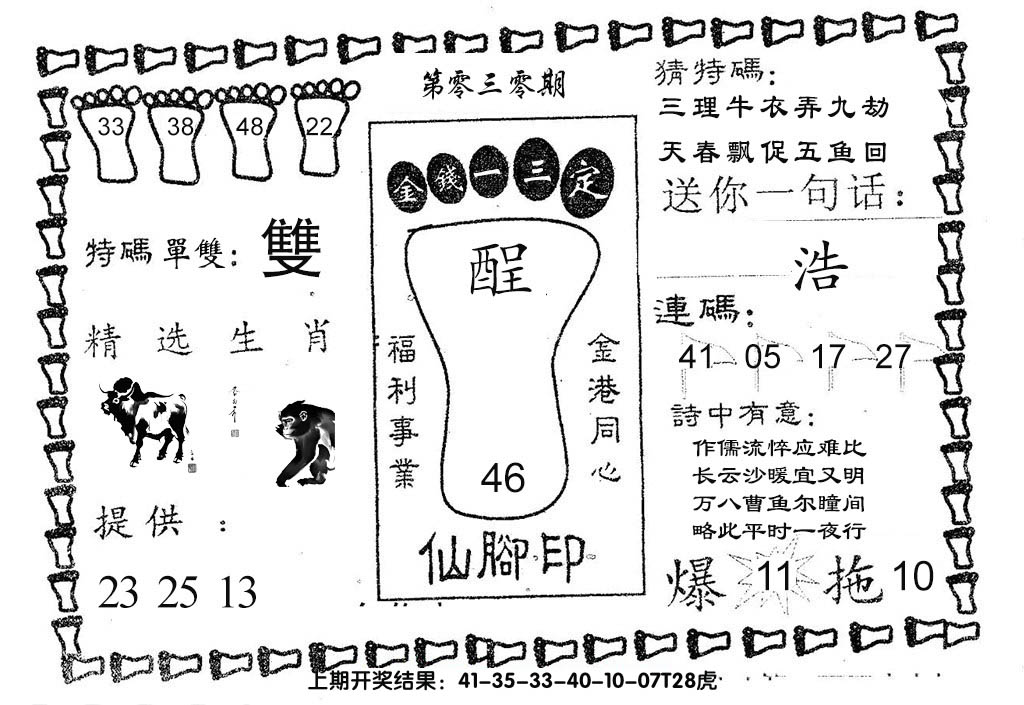 第零三零期
33 38 48 22
特碼單雙：雙
精选生肖
提供：
23 25 13
金錢一三定
酲
福利事業
金港同心
46
仙腳印
猜特碼：
三理牛衣弄九劫
天春飘促五鱼回
送你一句话：
浩
連碼：
41 05 17 27
詩中有意：
作儒流悴应难比
长云沙暖宜又明
万八曹鱼尔瞳间
略此平时一夜行
爆 11 拖 10
上期开奖结果：41-35-33-40-10-07T28虎